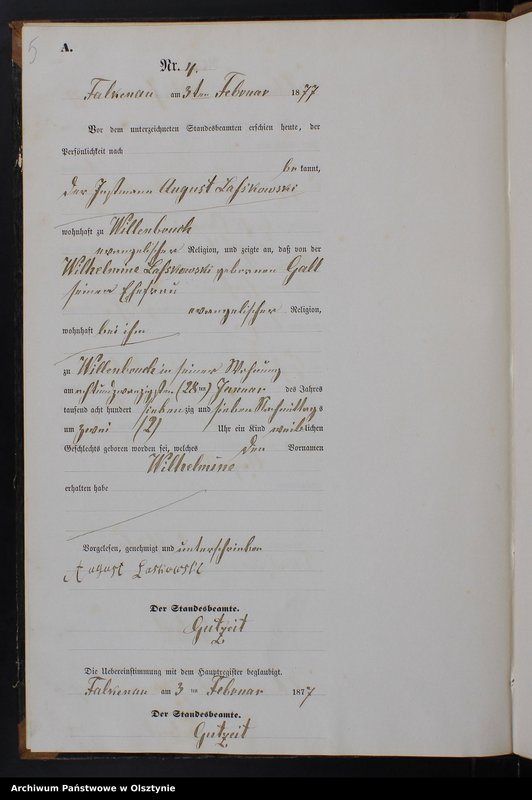 5
A.
Nr. 4.
Falkenau am 3ten Februar 1877
Vor dem unterzeichneten Standesbeamten erschien heute, der
Persönlichkeit nach
be kannt,
der Instmann August Lasskowski
wohnhaft zu Willenbouck
evangelischer Religion, und zeigte an, daß von der
Wilhelmine Lasskowski geborenen Gall
seiner Ehefrau
evangelischer Religion,
wohnhaft bei ihm
zu Willenbouck in seiner Wohnung
am achtundzwanzigsten (28ten) Januar des Jahres
tausend acht hundert sieben zig und sieben Nachmittags
um zwei (2) Uhr ein Kind weiblichen
Geschlechts geboren worden sei, welches den Vornamen
Wilhelmine
erhalten habe
Vorgelesen, genehmigt und unterschrieben
August Laskowski
Der Standesbeamte.
Gutzeit
Die Uebereinstimmung mit dem Hauptregister beglaubigt.
Falkenau am 3 ten Februar 1877
Der Standesbeamte.
Gutzeit
Archiwum Państwowe w Olsztynie